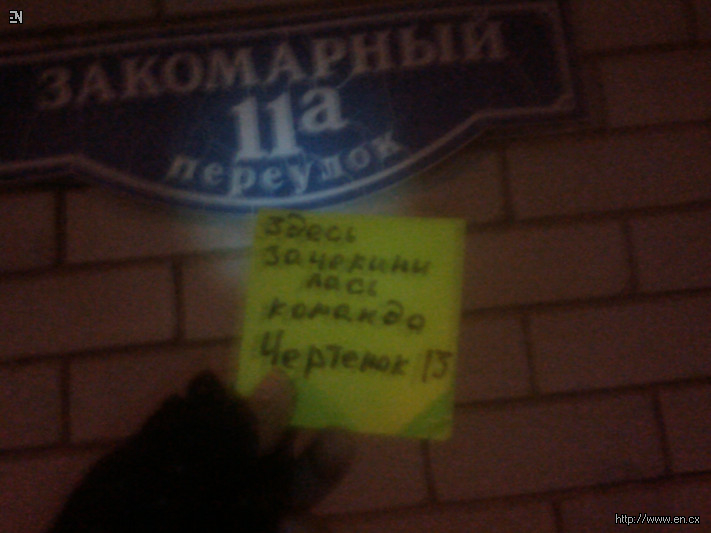 EN
ЗАКОМАРНЫЙ
11а
переулок
здесь
зачекини
лась
команда
Чертенок 13
http://www.en.cx